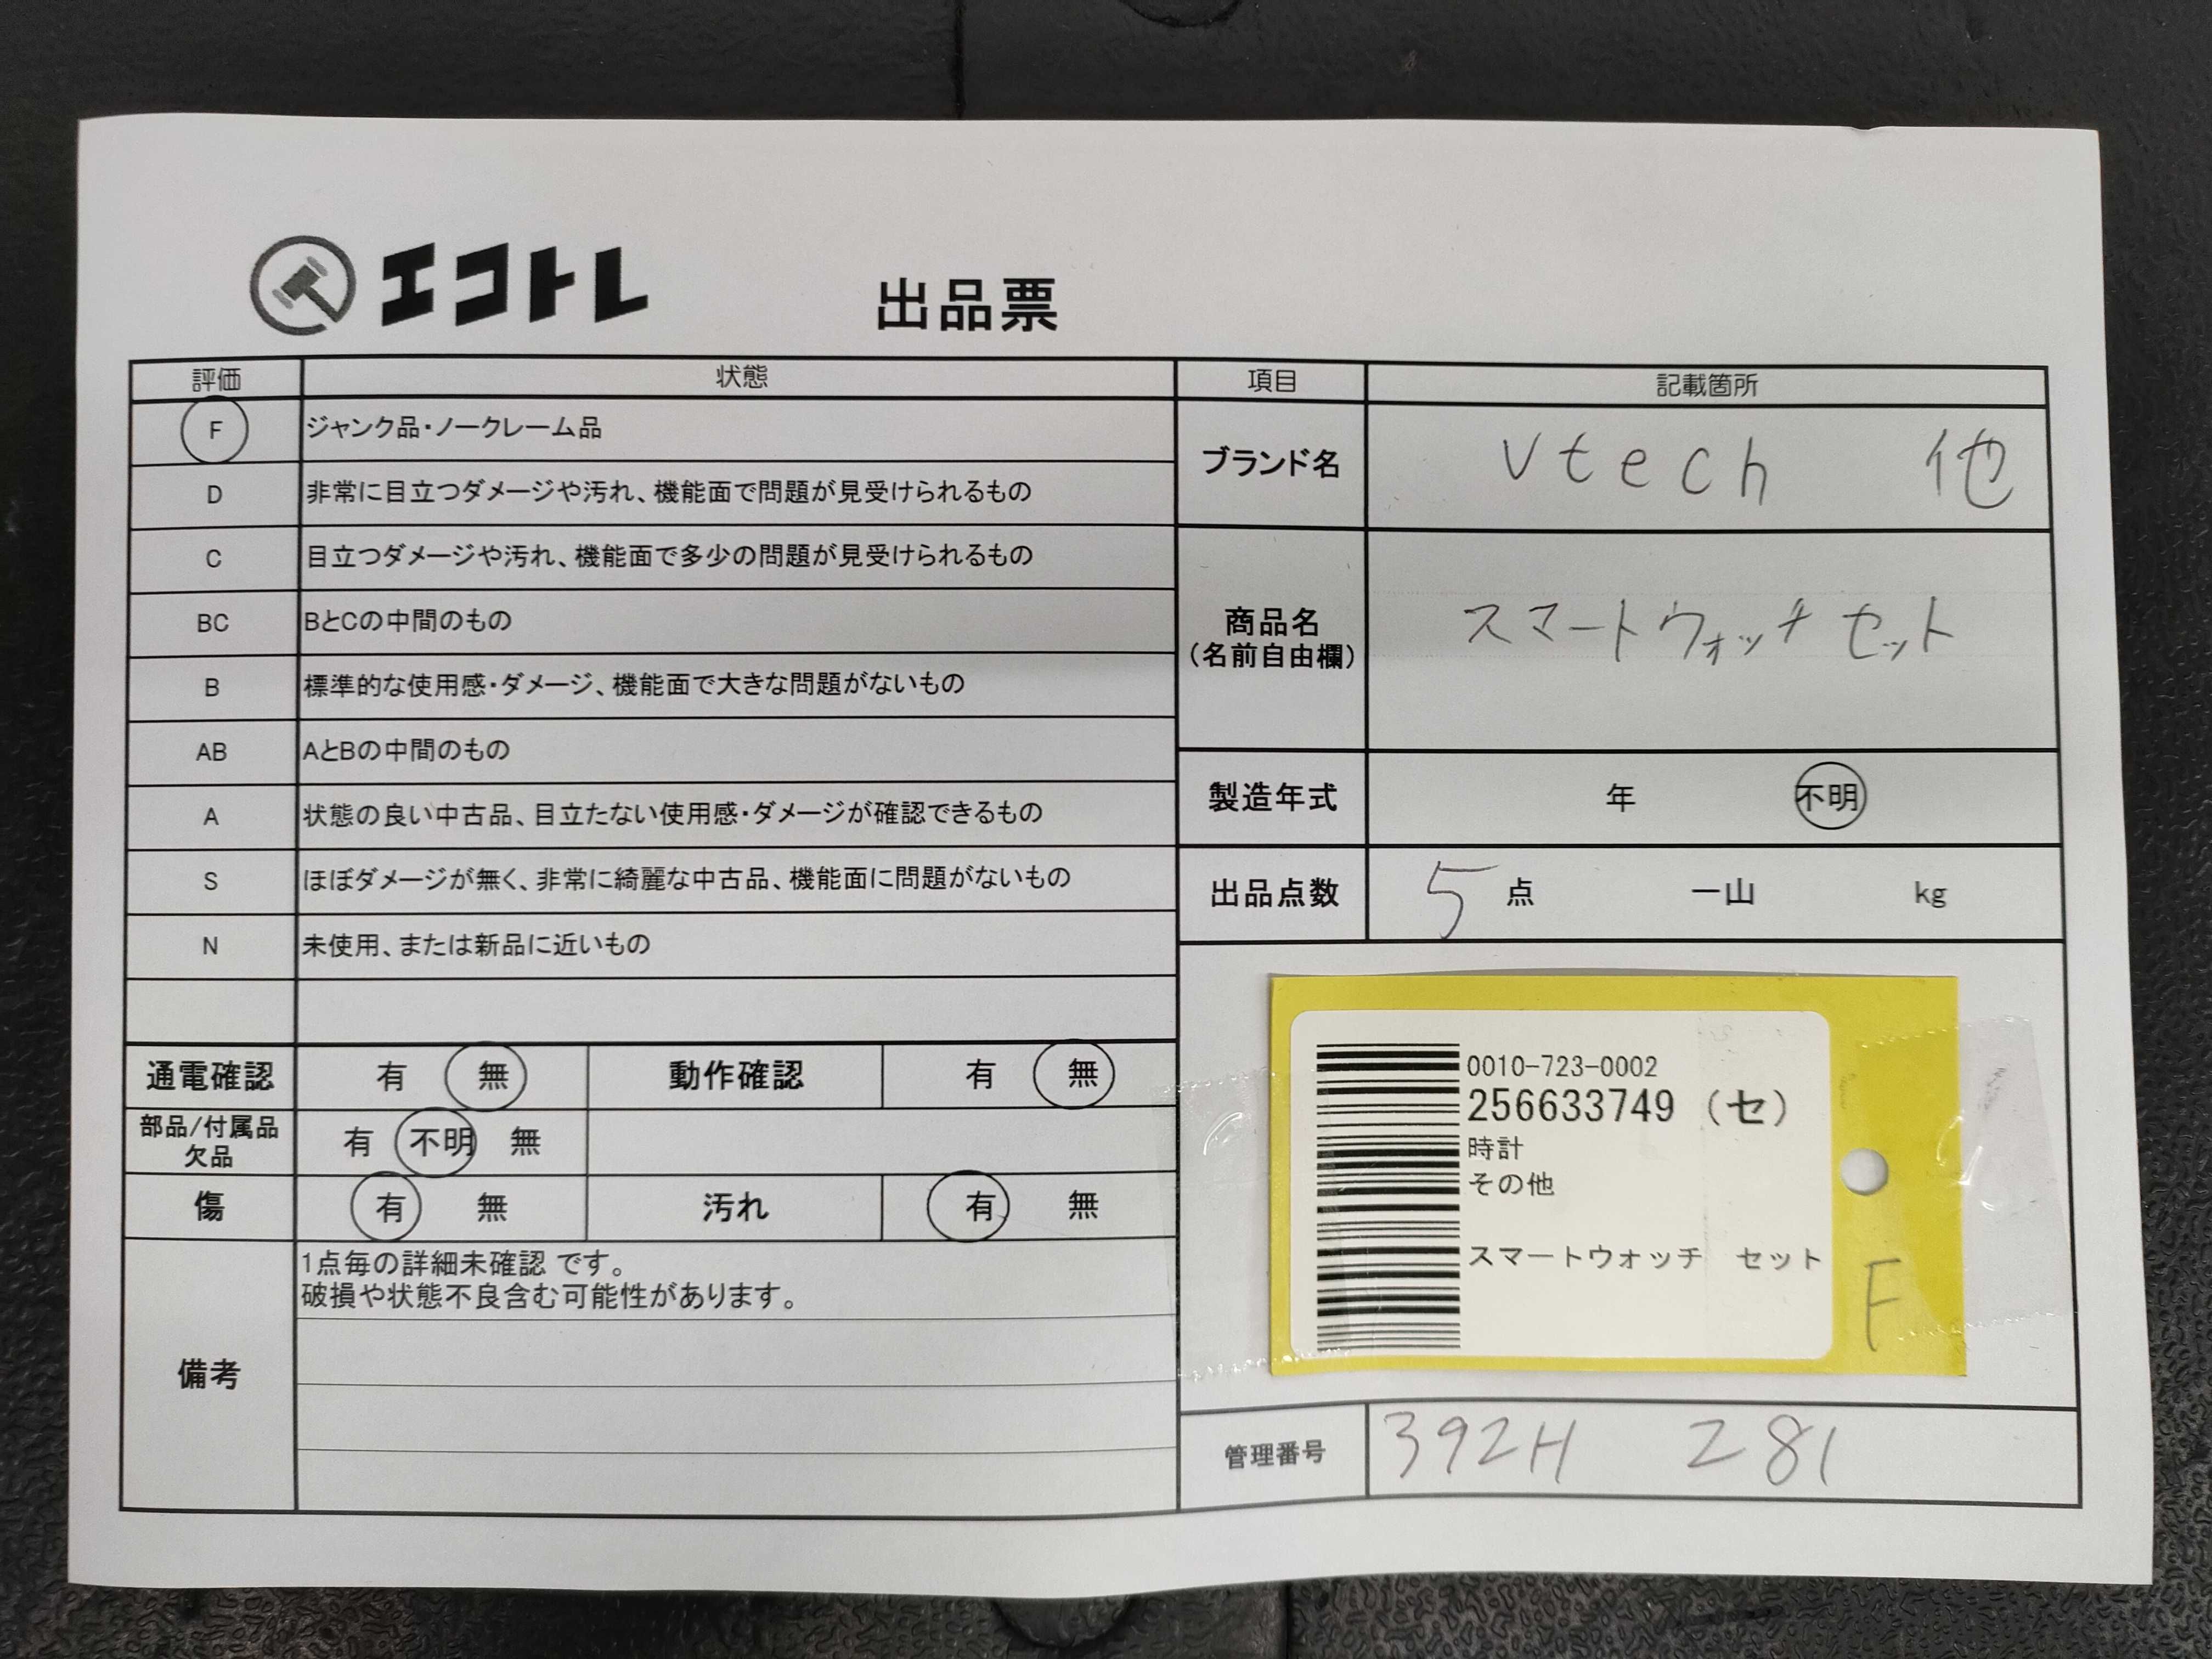 エコトレ
出品票
評価 状態
F ジャンク品・ノークレーム品
D 非常に目立つダメージや汚れ、機能面で問題が見受けられるもの
C 目立つダメージや汚れ、機能面で多少の問題が見受けられるもの
BC BとCの中間のもの
B 標準的な使用感・ダメージ、機能面で大きな問題がないもの
AB AとBの中間のもの
A 状態の良い中古品、目立たない使用感・ダメージが確認できるもの
S ほぼダメージが無く、非常に綺麗な中古品、機能面に問題がないもの
N 未使用、または新品に近いもの
通電確認 有 無 動作確認 有 無
部品/付属品
欠品
有 不明 無
傷 有 無 汚れ 有 無
備考
1点毎の詳細未確認 です。
破損や状態不良含む可能性があります。
項目 記載箇所
ブランド名 Vtech 他
商品名
(名前自由欄)
スマートウォッチセット
製造年式 年 不明
出品点数 5 点 一山 kg
0010-723-0002
256633749 (セ)
時計
その他
スマートウォッチ セット
F
管理番号 392H 281